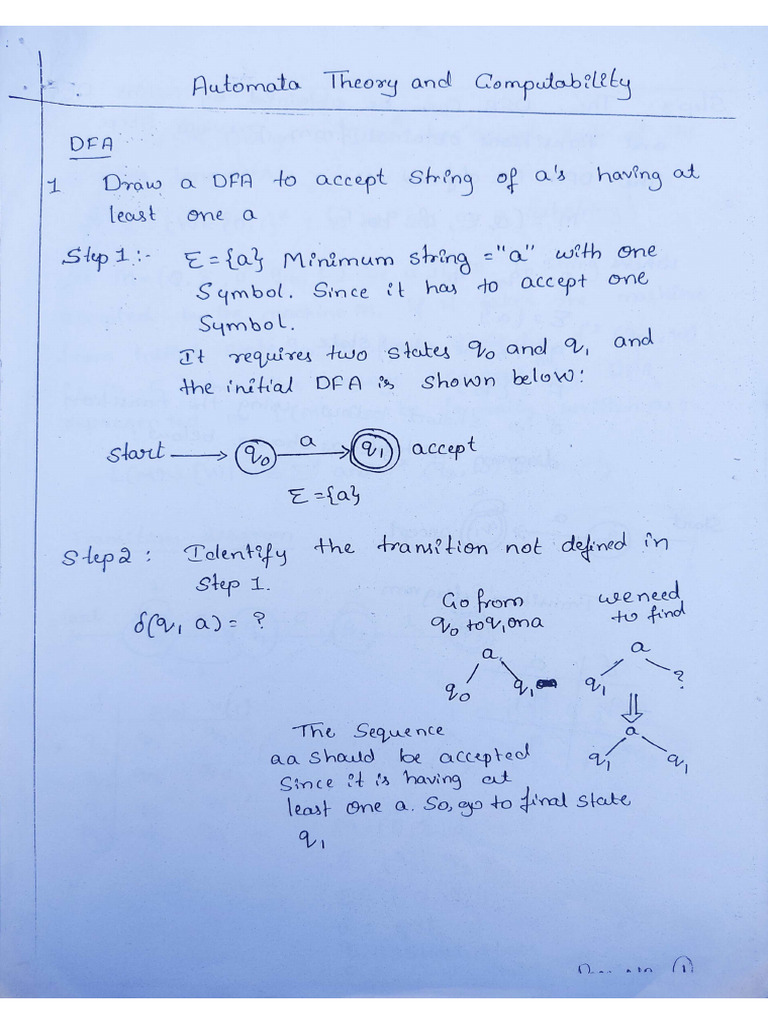 Automata Theory and Computability
DFA
1 Draw a DFA to accept string of a's having at
least one a
Step 1:- Σ={a} Minimum string ="a" with one
Symbol. Since it has to accept one
Symbol.
It requires two states q0 and q1 and
the initial DFA is shown below:
Start q0 a q1 accept
Σ={a}
Step 2: Identify the transition not defined in
Step 1.
δ(q1 a) = ?
Go from
q0 to q1 on a
a
q0 q1
we need
to find
a
q1 ?
⇓
a
q1 q1
The Sequence
aa should be accepted
Since it is having at
least one a. So, go to final state
q1